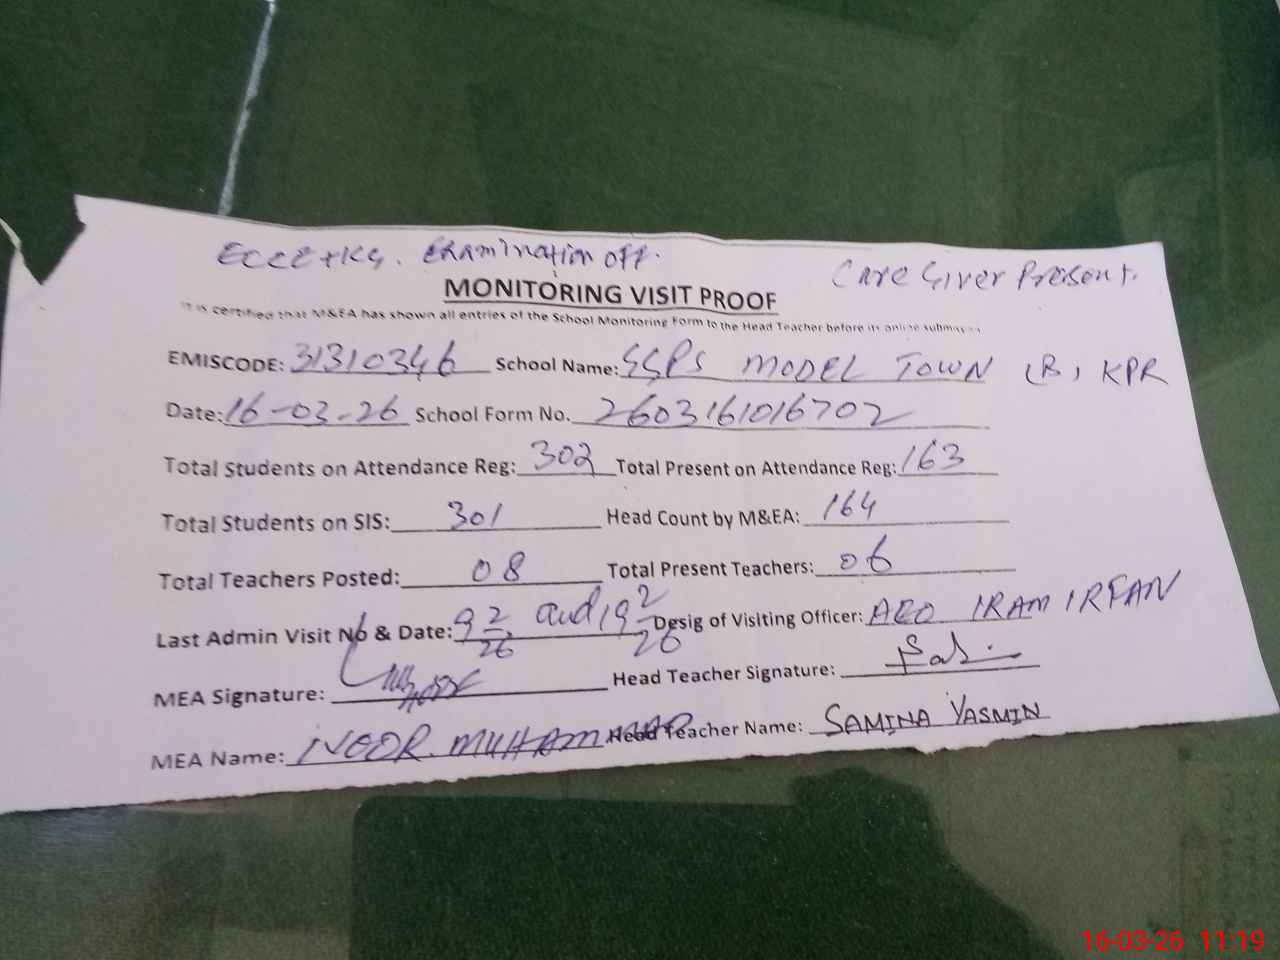 ECCE + KG. Examination off.
Care Giver Present.
MONITORING VISIT PROOF
It is certified that M&EA has shown all entries of the School Monitoring Form to the Head Teacher before its online submission
EMISCODE: 31310346 School Name: GGPS MODEL TOWN (B) KPR
Date: 16-03-26 School Form No. 2603161016702
Total Students on Attendance Reg: 302 Total Present on Attendance Reg: 163
Total Students on SIS: 301 Head Count by M&EA: 164
Total Teachers Posted: 08 Total Present Teachers: 06
Last Admin Visit No & Date: 9 2/26, and 19 2/26 Desig of Visiting Officer: AEO IRAM IRFAN
MEA Signature: Head Teacher Signature:
MEA Name: NOOR MUHAMMAD Head Teacher Name: SAMINA YASMIN
16-03-26 11:19